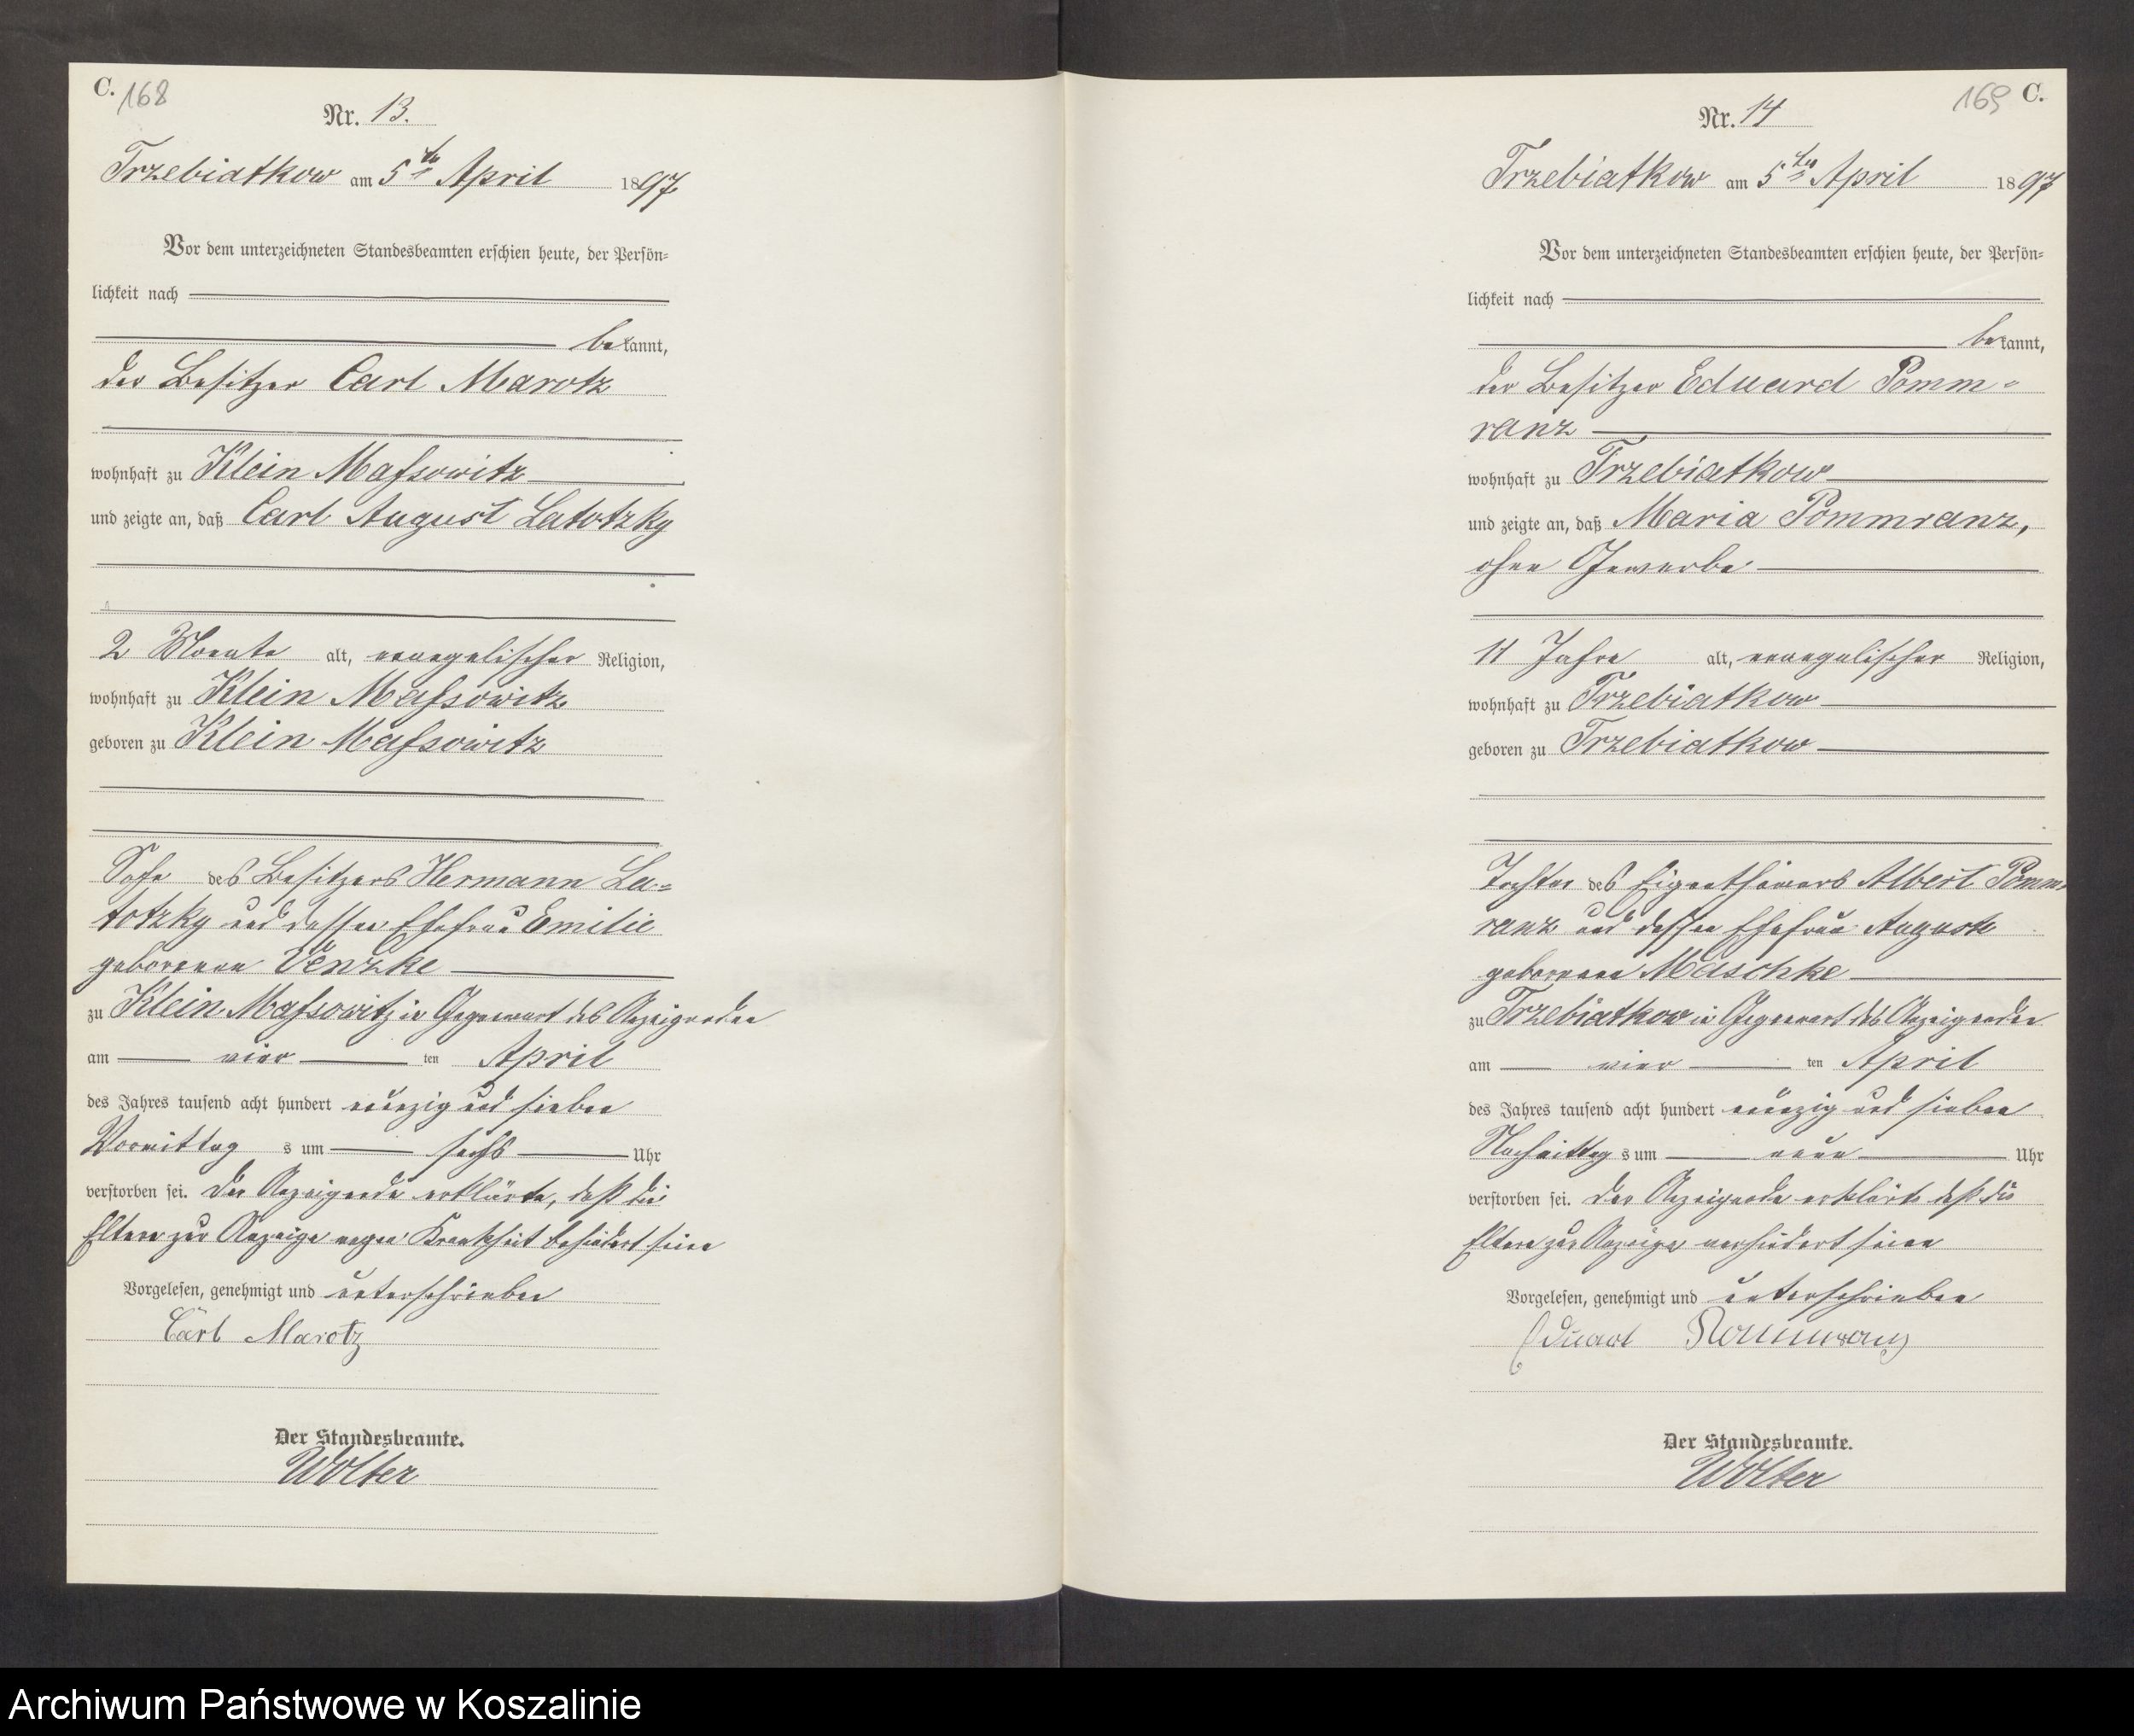 C. 168
Nr. 13.
Trzebiatkow am 5ten April 1897
Vor dem unterzeichneten Standesbeamten erschien heute, der Persön=
lichkeit nach
bekannt,
der Besitzer Carl Marotz
wohnhaft zu Klein Massowitz
und zeigte an, daß Carl August Latotzky
2 Monate alt, evangelischer Religion,
wohnhaft zu Klein Massowitz
geboren zu Klein Massowitz
Sohn des Besitzers Hermann La=
totzky und dessen Ehefrau Emilie
geborenen Venzke
zu Klein Massowitz in Gegenwart des Anzeigenden
am vier ten April
des Jahres tausend acht hundert neunzig und sieben
Vormittag s um sechs Uhr
verstorben sei. Der Anzeigende erklärte, daß die
Eltern zur Anzeige wegen Krankheit behindert seien
Vorgelesen, genehmigt und unterschrieben
Carl Marotz
Der Standesbeamte.
Wolter
169 C.
Nr. 14
Trzebiatkow am 5ten April 1897
Vor dem unterzeichneten Standesbeamten erschien heute, der Persön=
lichkeit nach
bekannt,
der Besitzer Eduard Pomm=
ranz
wohnhaft zu Trzebiatkow
und zeigte an, daß Maria Pommranz,
ohne Gewerbe
11 Jahre alt, evangelischer Religion,
wohnhaft zu Trzebiatkow
geboren zu Trzebiatkow
Tochter des Eigenthümers Albert Pomm=
ranz und dessen Ehefrau Auguste
geborenen Maschke
zu Trzebiatkow in Gegenwart des Anzeigenden
am vier ten April
des Jahres tausend acht hundert neunzig und sieben
Nachmittag s um neun Uhr
verstorben sei. Der Anzeigende erklärte daß die
Eltern zur Anzeige verhindert seien
Vorgelesen, genehmigt und unterschrieben
Eduard Pommranz
Der Standesbeamte.
Wolter
Archiwum Państwowe w Koszalinie